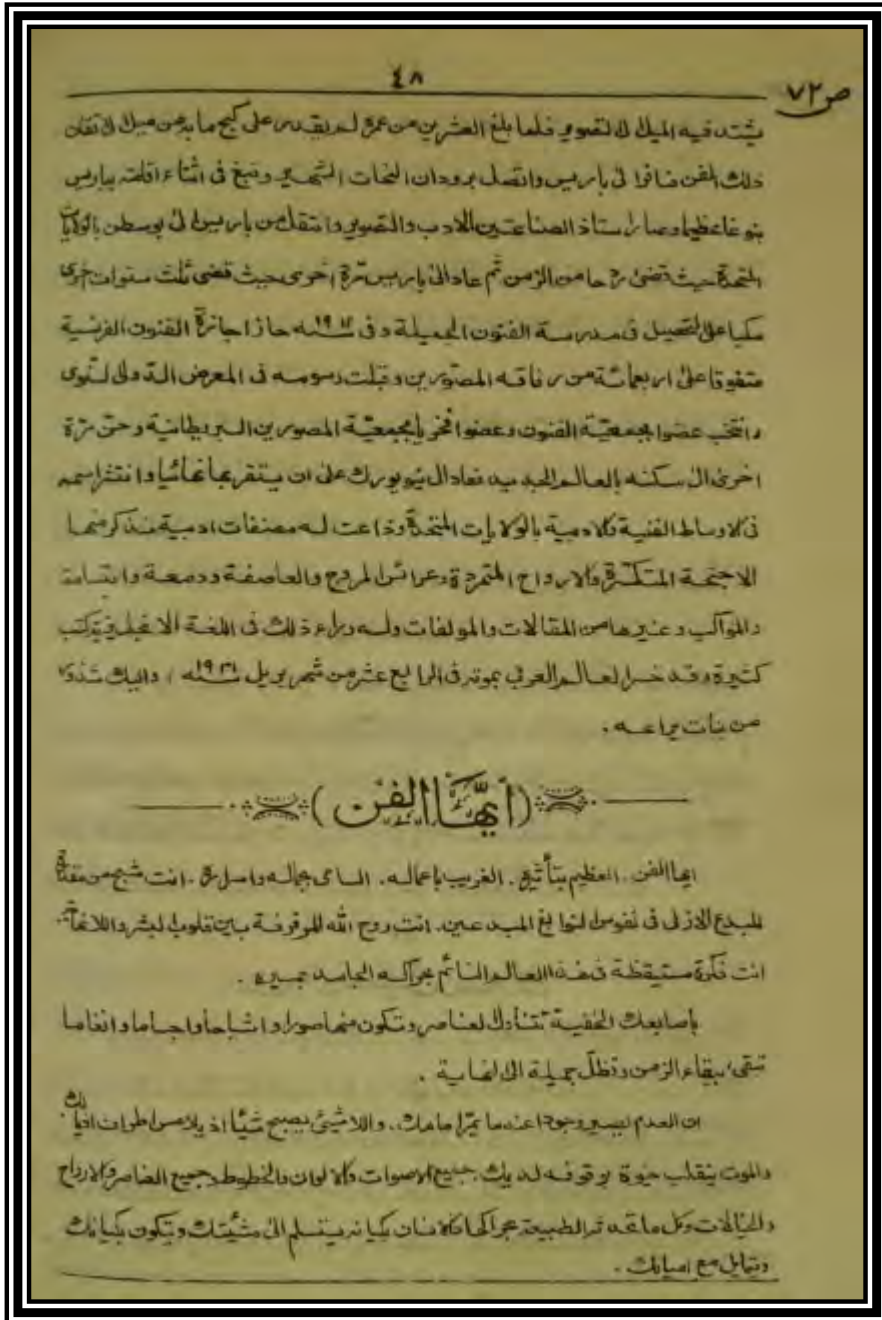 ٤٨
ص ٧٢
يشتد فيه الميل الى لتصوير فلما بلغ العشرين من عمره لم يقدر على كبح ما به من ميل الى اتقان
ذلك الفن فسافر الى باريس واتصل برودان النحات الشهير ونبغ فى اثناء اقامته بباريس
نبوغا عظيما وصار استاذ الصناعتين الادب والتصوير وانتقل من باريس الى بوسطن بالولايات
المتحدة حيث قضى ردحا من الزمن ثم عاد الى باريس مرّة اخرى حيث قضى ثلث سنوات اخرى
مكبا على التحصيل فى مدرسة الفنون الجميلة وفى سنة ١٩١٢ حاز اجازة الفنون الفرنسية
متفوقا على اربعمائة من رفاقه المصوّرين وقبلت رسومه فى المعرض الدولى السنوى
وانتخب عضوا بجمعيّة الفنون وعضوا فخريا بجمعيّة المصورين البريطانية وحنّ مرّة
اخرى الى سكنه بالعالم الجديد فعاد الى نيويورك على ان يستقر بها نهائيا وانتشر اسمه
فى الاوساط الفنية والادمية بالولايات المتحدة وذاعت له مصنفات ادمية نذكر منها
الاجنحة المتكسّرة والارواح المتمردة وعرائس المروج والعاصفة ودمعة وابتسامة
والمواكب وغيرها من المقالات والمولفات وله وراء ذلك فى اللغة الانجليزية كتب
كثيرة وقد خسر العالم العربي بموته فى الرابع عشر من شهر بريل سنة ١٩٣١ ، واليك شذرة
من بنات يراعه .
(أيّها الفن)
ايها الفن . العظيم بتأثيره . الغريب باعماله . السامى بجماله واسراره . انت شبح من مقدرة
المبدع الازلى فى نفوس النوابغ المبدعين . انت روح الله المرفرفة بين قلوب البشر واللانهاية .
انت فكرة مستيقظة فى هذا العالم النائم بحراكه الجامد بمسيره .
بأصابعك الخفية تتناول العناصر وتكون منها صورا واشباحا واجساما وانغاما
تبقى ببقاء الزمن وتظلّ جميلة الى النهاية .
ان العدم ليصير وجودا عندما يمرّ امامك . واللاشيئ يصبح شيئا اذ يلامس اطراف اذيالك .
والموت ينقلب حيوة بوقوفه لديك . جميع الاصوات والالوان والخطوط وجميع العناصر والارواح
والخيالات وكل ما تحدثه الطبيعة بحراكها والانسان بكيانه يستسلم الى مشيئتك ويتكون بكيانك
ويتمايل مع اميالك .